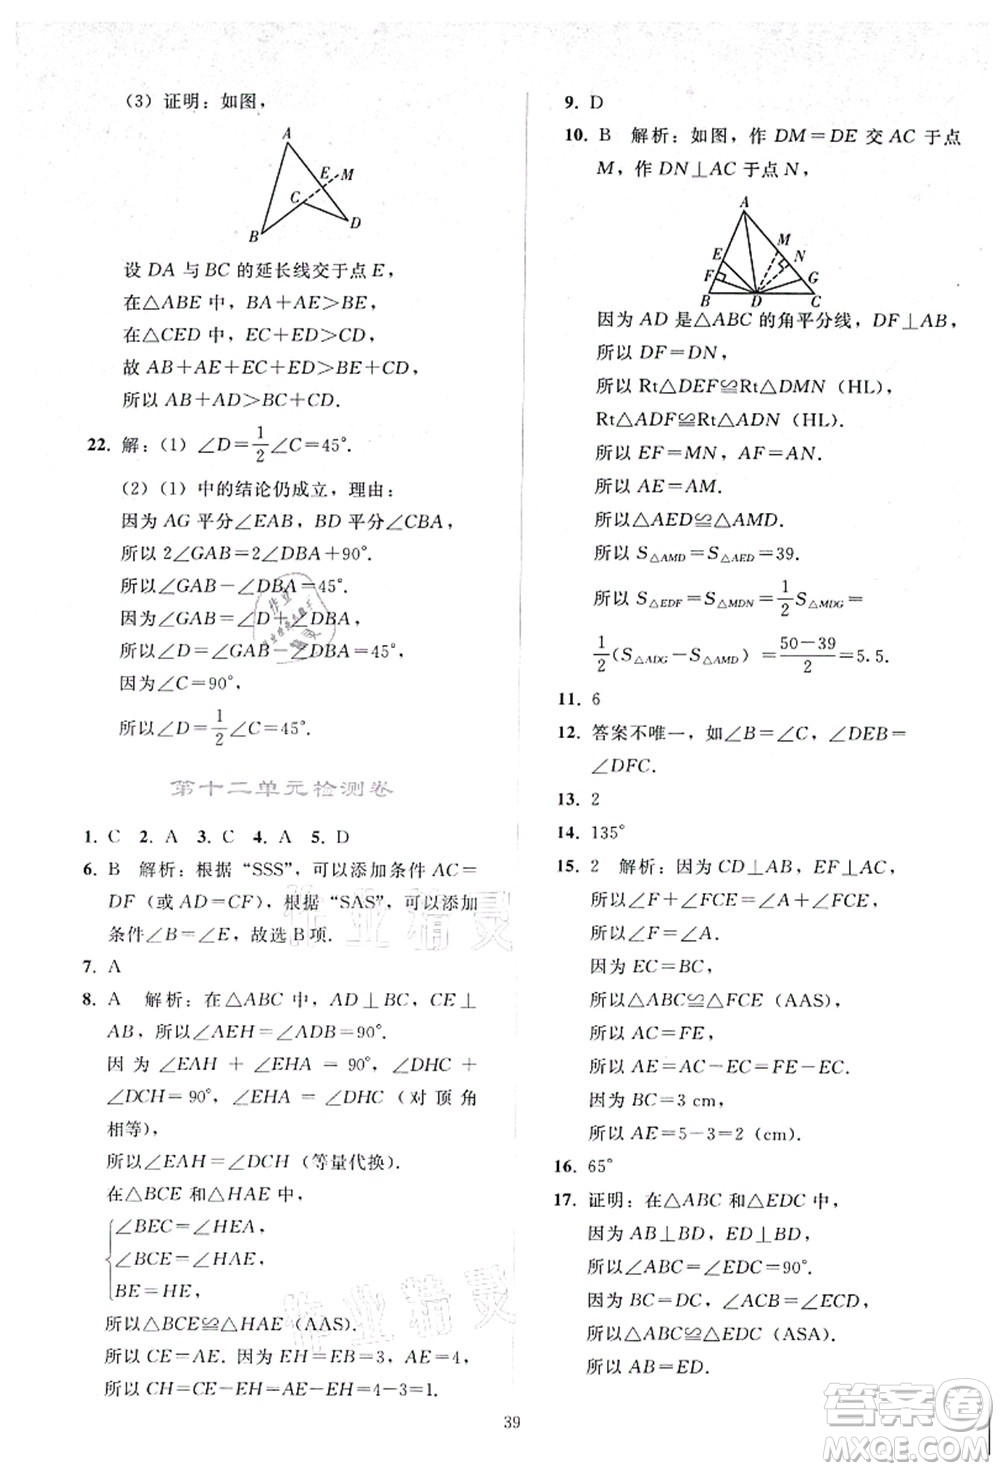 (3) 证明:如图,
A
E
M
C
D
B
设 DA 与 BC 的延长线交于点 E,
在△ABE 中,BA+AE>BE,
在△CED 中,EC+ED>CD,
故 AB+AE+EC+ED>BE+CD,
所以 AB+AD>BC+CD.
22. 解:(1) ∠D=1/2∠C=45°.
(2)(1) 中的结论仍成立,理由:
因为 AG 平分∠EAB,BD 平分∠CBA,
所以 2∠GAB=2∠DBA+90°.
所以∠GAB-∠DBA=45°.
因为∠GAB=∠D+∠DBA,
所以∠D=∠GAB-∠DBA=45°,
因为∠C=90°,
所以∠D=1/2∠C=45°.
第十二单元检测卷
1. C 2. A 3. C 4. A 5. D
6. B 解析:根据“SSS”,可以添加条件 AC=
DF(或 AD=CF),根据“SAS”,可以添加
条件∠B=∠E,故选 B 项.
7. A
8. A 解析:在△ABC 中,AD⊥BC,CE⊥
AB,所以∠AEH=∠ADB=90°.
因为 ∠EAH + ∠EHA = 90°,∠DHC +
∠DCH = 90°,∠EHA = ∠DHC (对顶角
相等),
所以∠EAH=∠DCH (等量代换).
在△BCE 和△HAE 中,
∠BEC=∠HEA,
∠BCE=∠HAE,
BE=HE,
所以△BCE≌△HAE (AAS).
所以 CE=AE. 因为 EH=EB=3,AE=4,
所以 CH=CE-EH=AE-EH=4-3=1.
9. D
10. B 解析:如图,作 DM=DE 交 AC 于点
M,作 DN⊥AC 于点 N,
A
E
M
N
F
G
B
D
C
因为 AD 是△ABC 的角平分线,DF⊥AB,
所以 DF=DN,
所以 Rt△DEF≌Rt△DMN (HL),
Rt△ADF≌Rt△ADN (HL).
所以 EF=MN,AF=AN.
所以 AE=AM.
所以△AED≌△AMD.
所以 S△AMD=S△AED=39.
所以 S△EDF=S△MDN=1/2S△MDG=
1/2(S△ADG-S△AMD)=(50-39)/2=5.5.
11. 6
12. 答案不唯一,如∠B=∠C,∠DEB=
∠DFC.
13. 2
14. 135°
15. 2 解析:因为 CD⊥AB,EF⊥AC,
所以∠F+∠FCE=∠A+∠FCE=90°.
所以∠F=∠A.
因为 EC=BC,
所以△ABC≌△FCE (AAS).
所以 AC=FE,
所以 AE=AC-EC=FE-EC.
因为 BC=3 cm,
所以 AE=5-3=2 (cm).
16. 65°
17. 证明:在△ABC 和△EDC 中,
因为 AB⊥BD,ED⊥BD,
所以∠ABC=∠EDC=90°.
因为 BC=DC,∠ACB=∠ECD,
所以△ABC≌△EDC (ASA).
所以 AB=ED.
39
作业精灵
作业精灵
答案圈
MXQE.COM